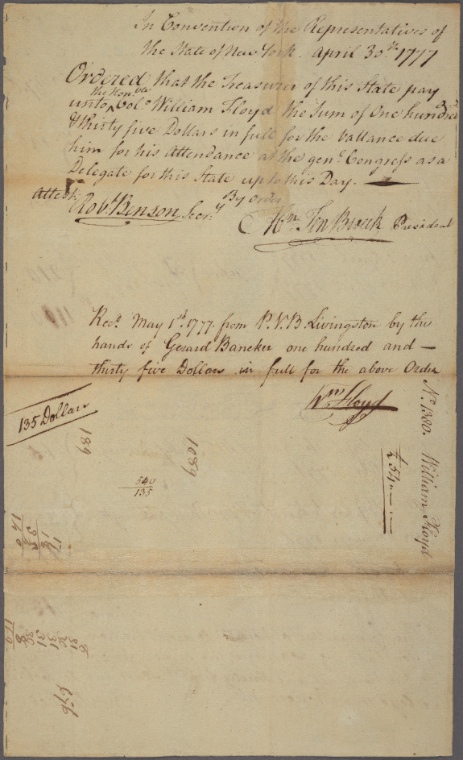 In Convention of the Representatives of
the State of New York April 30th 1777
Ordered that the Treasurer of this State pay
the Honble
unto Colo William Floyd the Sum of One hundred
& thirty five Dollars in full for the ballance due
him for his Attendance at the genl Congress as a
Delegate for this State up to this Day.
Attest By order
Robt Benson Secry Abm Ten Broeck President
Recd May 1st 1777 from P. V. B. Livingston by the
hands of Gerard Bancker one hundred and
thirty five Dollars in full for the above Order
Wm Floyd
135 Dollars
189
1089
540
135
No. 1380. William Floyd
£ 54